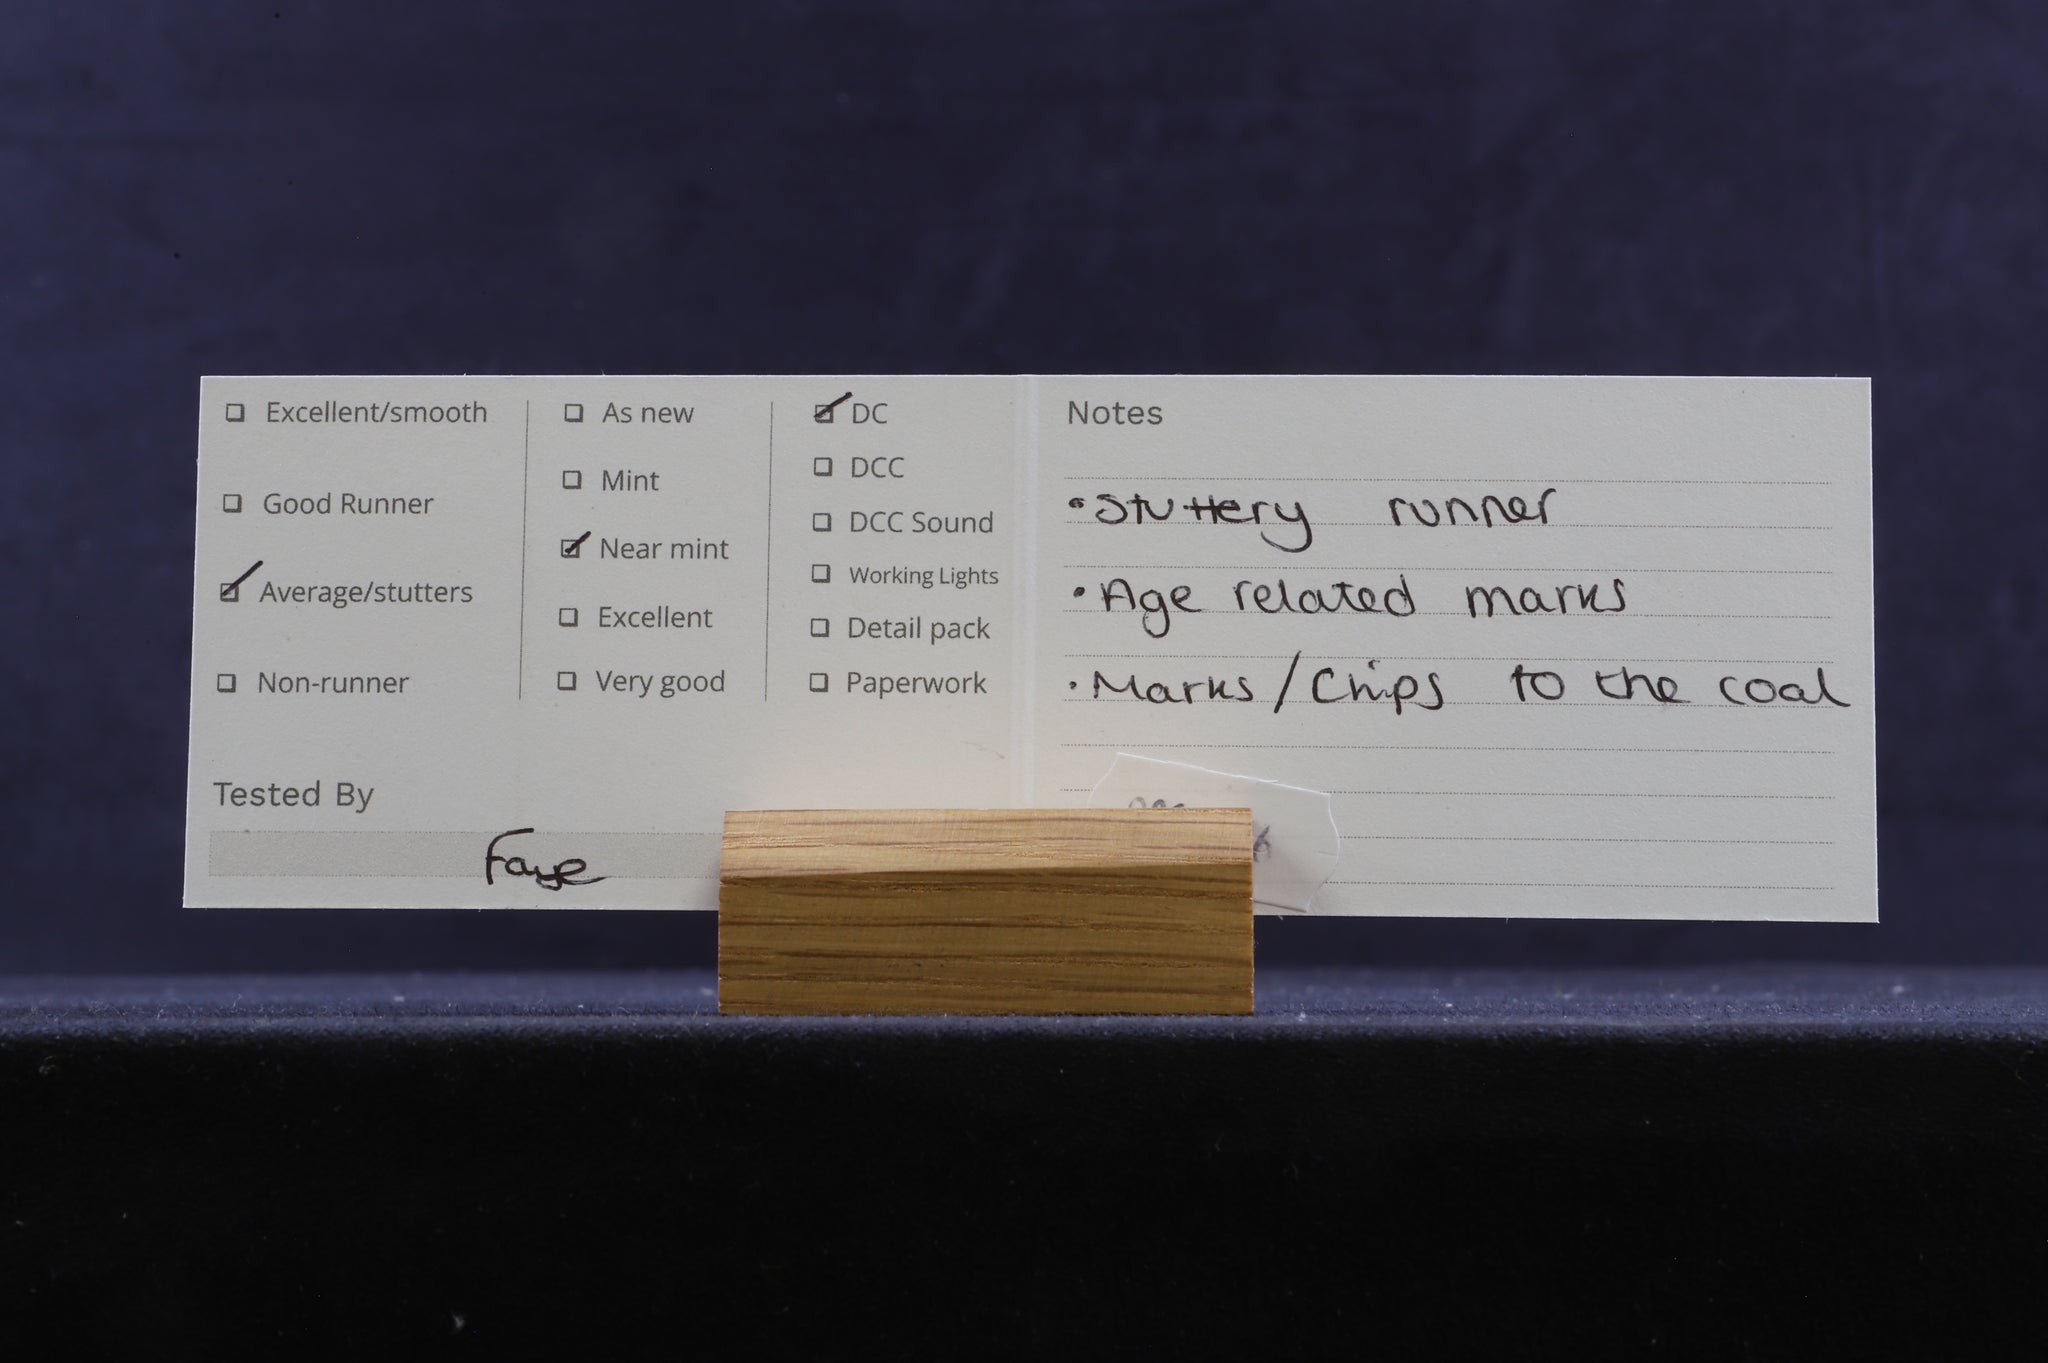 Excellent/smooth
Good Runner
Average/stutters
Non-runner
As new
Mint
Near mint
Excellent
Very good
DC
DCC
DCC Sound
Working Lights
Detail pack
Paperwork
Tested By
Faye
Notes
• Stuttery runner
• Age related marks
• Marks/Chips to the coal